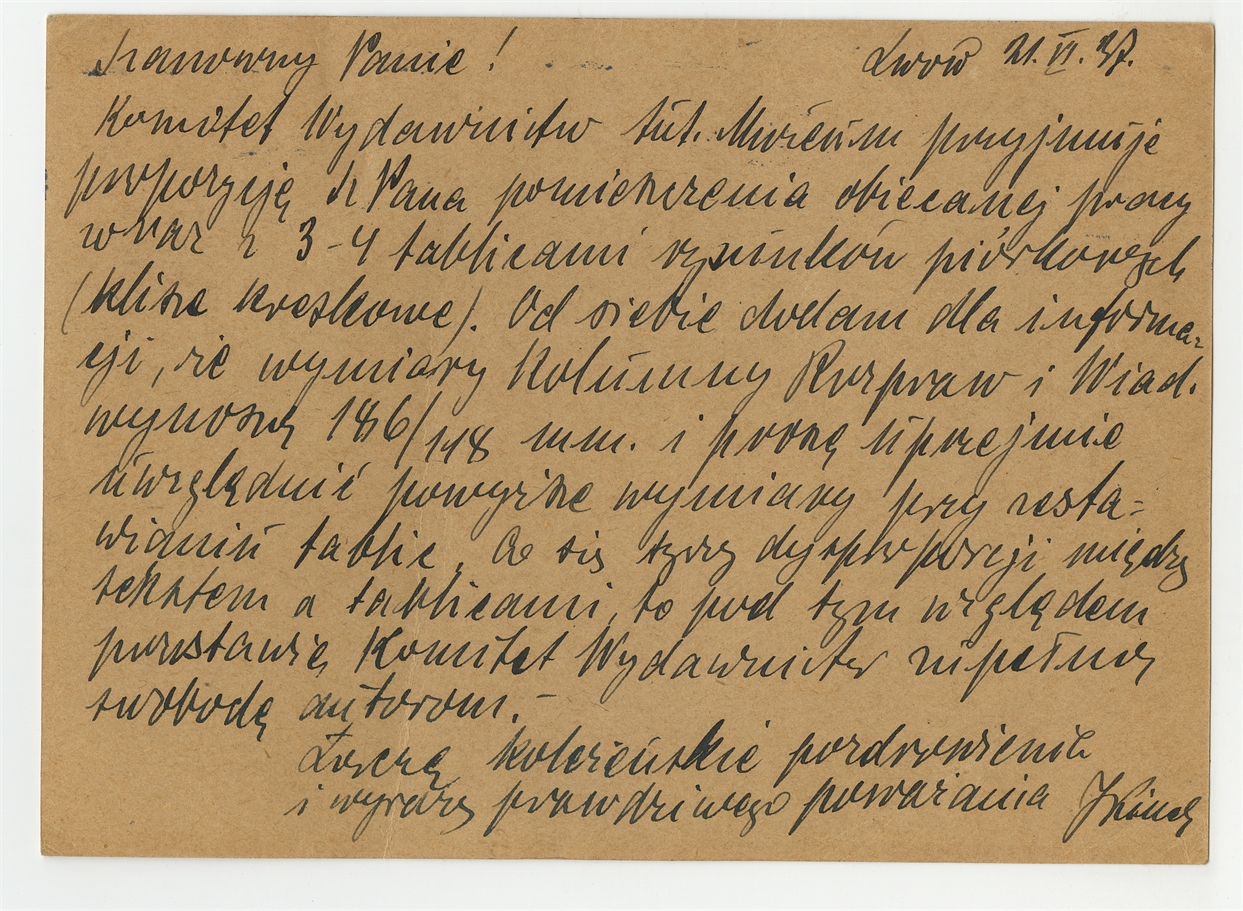 Szanowny Panie! Lwów 21. VI. 37.
Komitet Wydawnictw tut. Muzeum przyjmuje
propozycję Sz Pana pomieszczenia obiecanej pracy
wraz z 3-4 tablicami rysunków piórkowych
(klisze kreskowe). Od siebie dodam dla informa-
cji, że wymiary kolumny Rozpraw i Wiad.
wynoszą 186/118 mm. i proszę uprzejmie
uwzględnić powyższe wymiary przy zesta=
wianiu tablic. Co się tyczy dysproporcji między
tekstem a tablicami, to pod tym względem
pozostawia Komitet Wydawnictw zupełną
swobodę autorom.-
Łączę koleżeńskie pozdrowienia
i wyrazy prawdziwego poważania